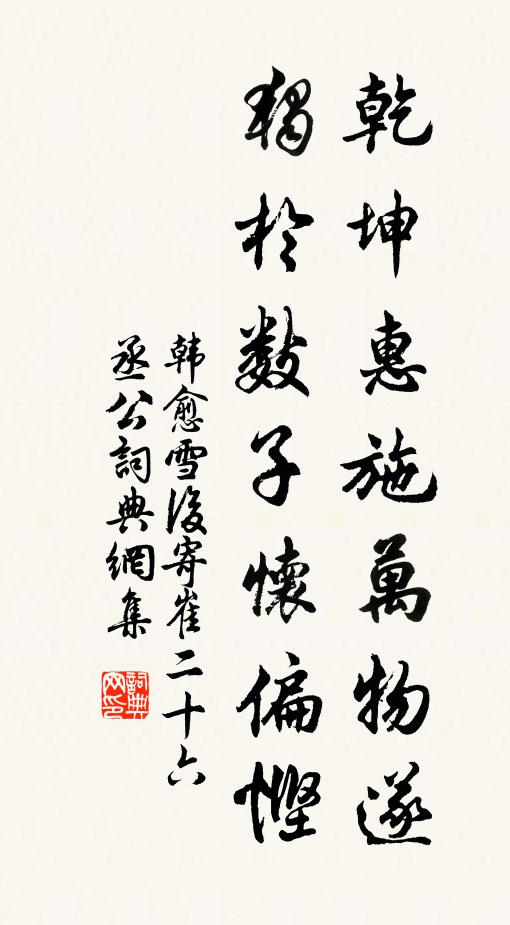 乾坤惠施萬物遂
獨於數子懷偏慳
韩愈雪後寄崔二十六
丞公詞典網集
詞典网印